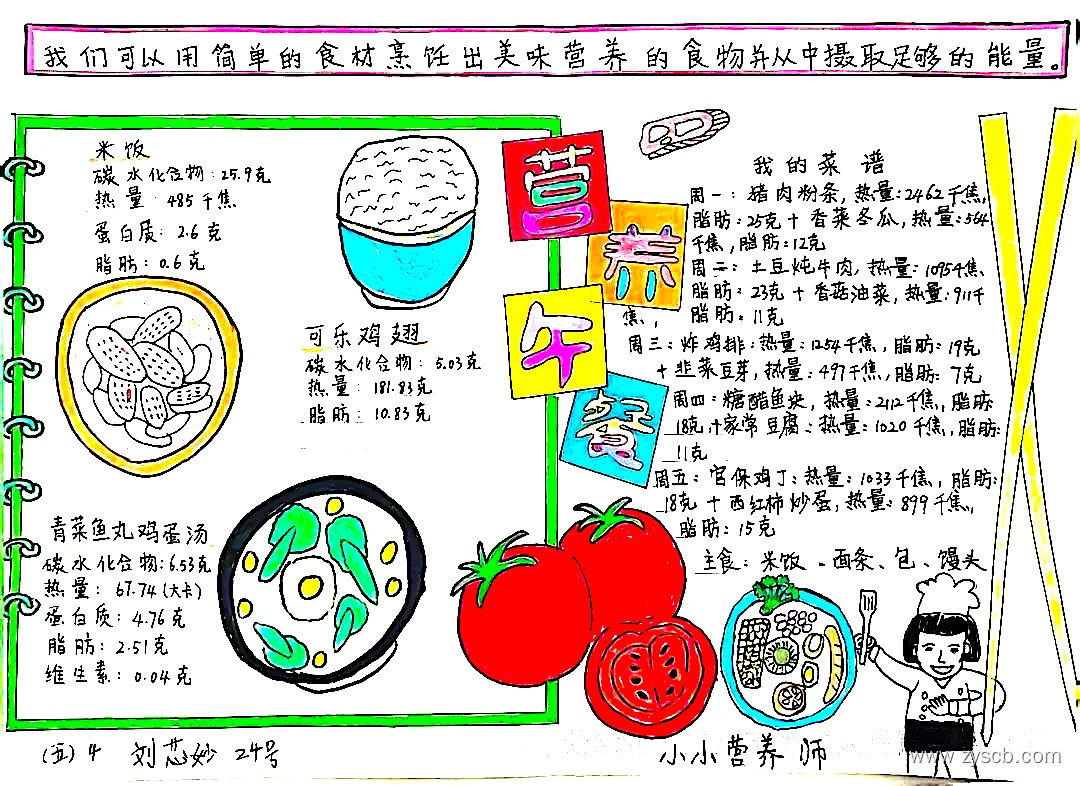 我们可以用简单的食材烹饪出美味营养的食物并从中摄取足够的能量。
米饭
碳水化合物：25.9克
热量：485千焦
蛋白质：2.6克
脂肪：0.6克
可乐鸡翅
碳水化合物：5.03克
热量：181.83克
脂肪：10.83克
青菜鱼丸鸡蛋汤
碳水化合物：6.53克
热量：67.74（大卡）
蛋白质：4.76克
脂肪：2.51克
维生素：0.04克
营
养
午
餐
我的菜谱
周一：猪肉粉条，热量：2462千焦，
脂肪：25克＋香菜冬瓜，热量：564
千焦，脂肪：12克
周二：土豆炖牛肉，热量：1095千焦、
脂肪：23克＋香菇油菜，热量：911千
焦，脂肪：11克
周三：炸鸡排：热量：1254千焦，脂肪：19克
＋韭菜豆芽，热量：497千焦，脂肪：7克
周四：糖醋鱼块，热量：2112千焦，脂肪：
18克，＋家常豆腐：热量：1020千焦，脂肪：
11克
周五：宫保鸡丁：热量：1033千焦，脂肪：
18克＋西红柿炒蛋，热量：899千焦，
脂肪：15克
主食：米饭、面条、包、馒头
（五）4 刘芯妙 24号
小小营养师
www.zyscb.com